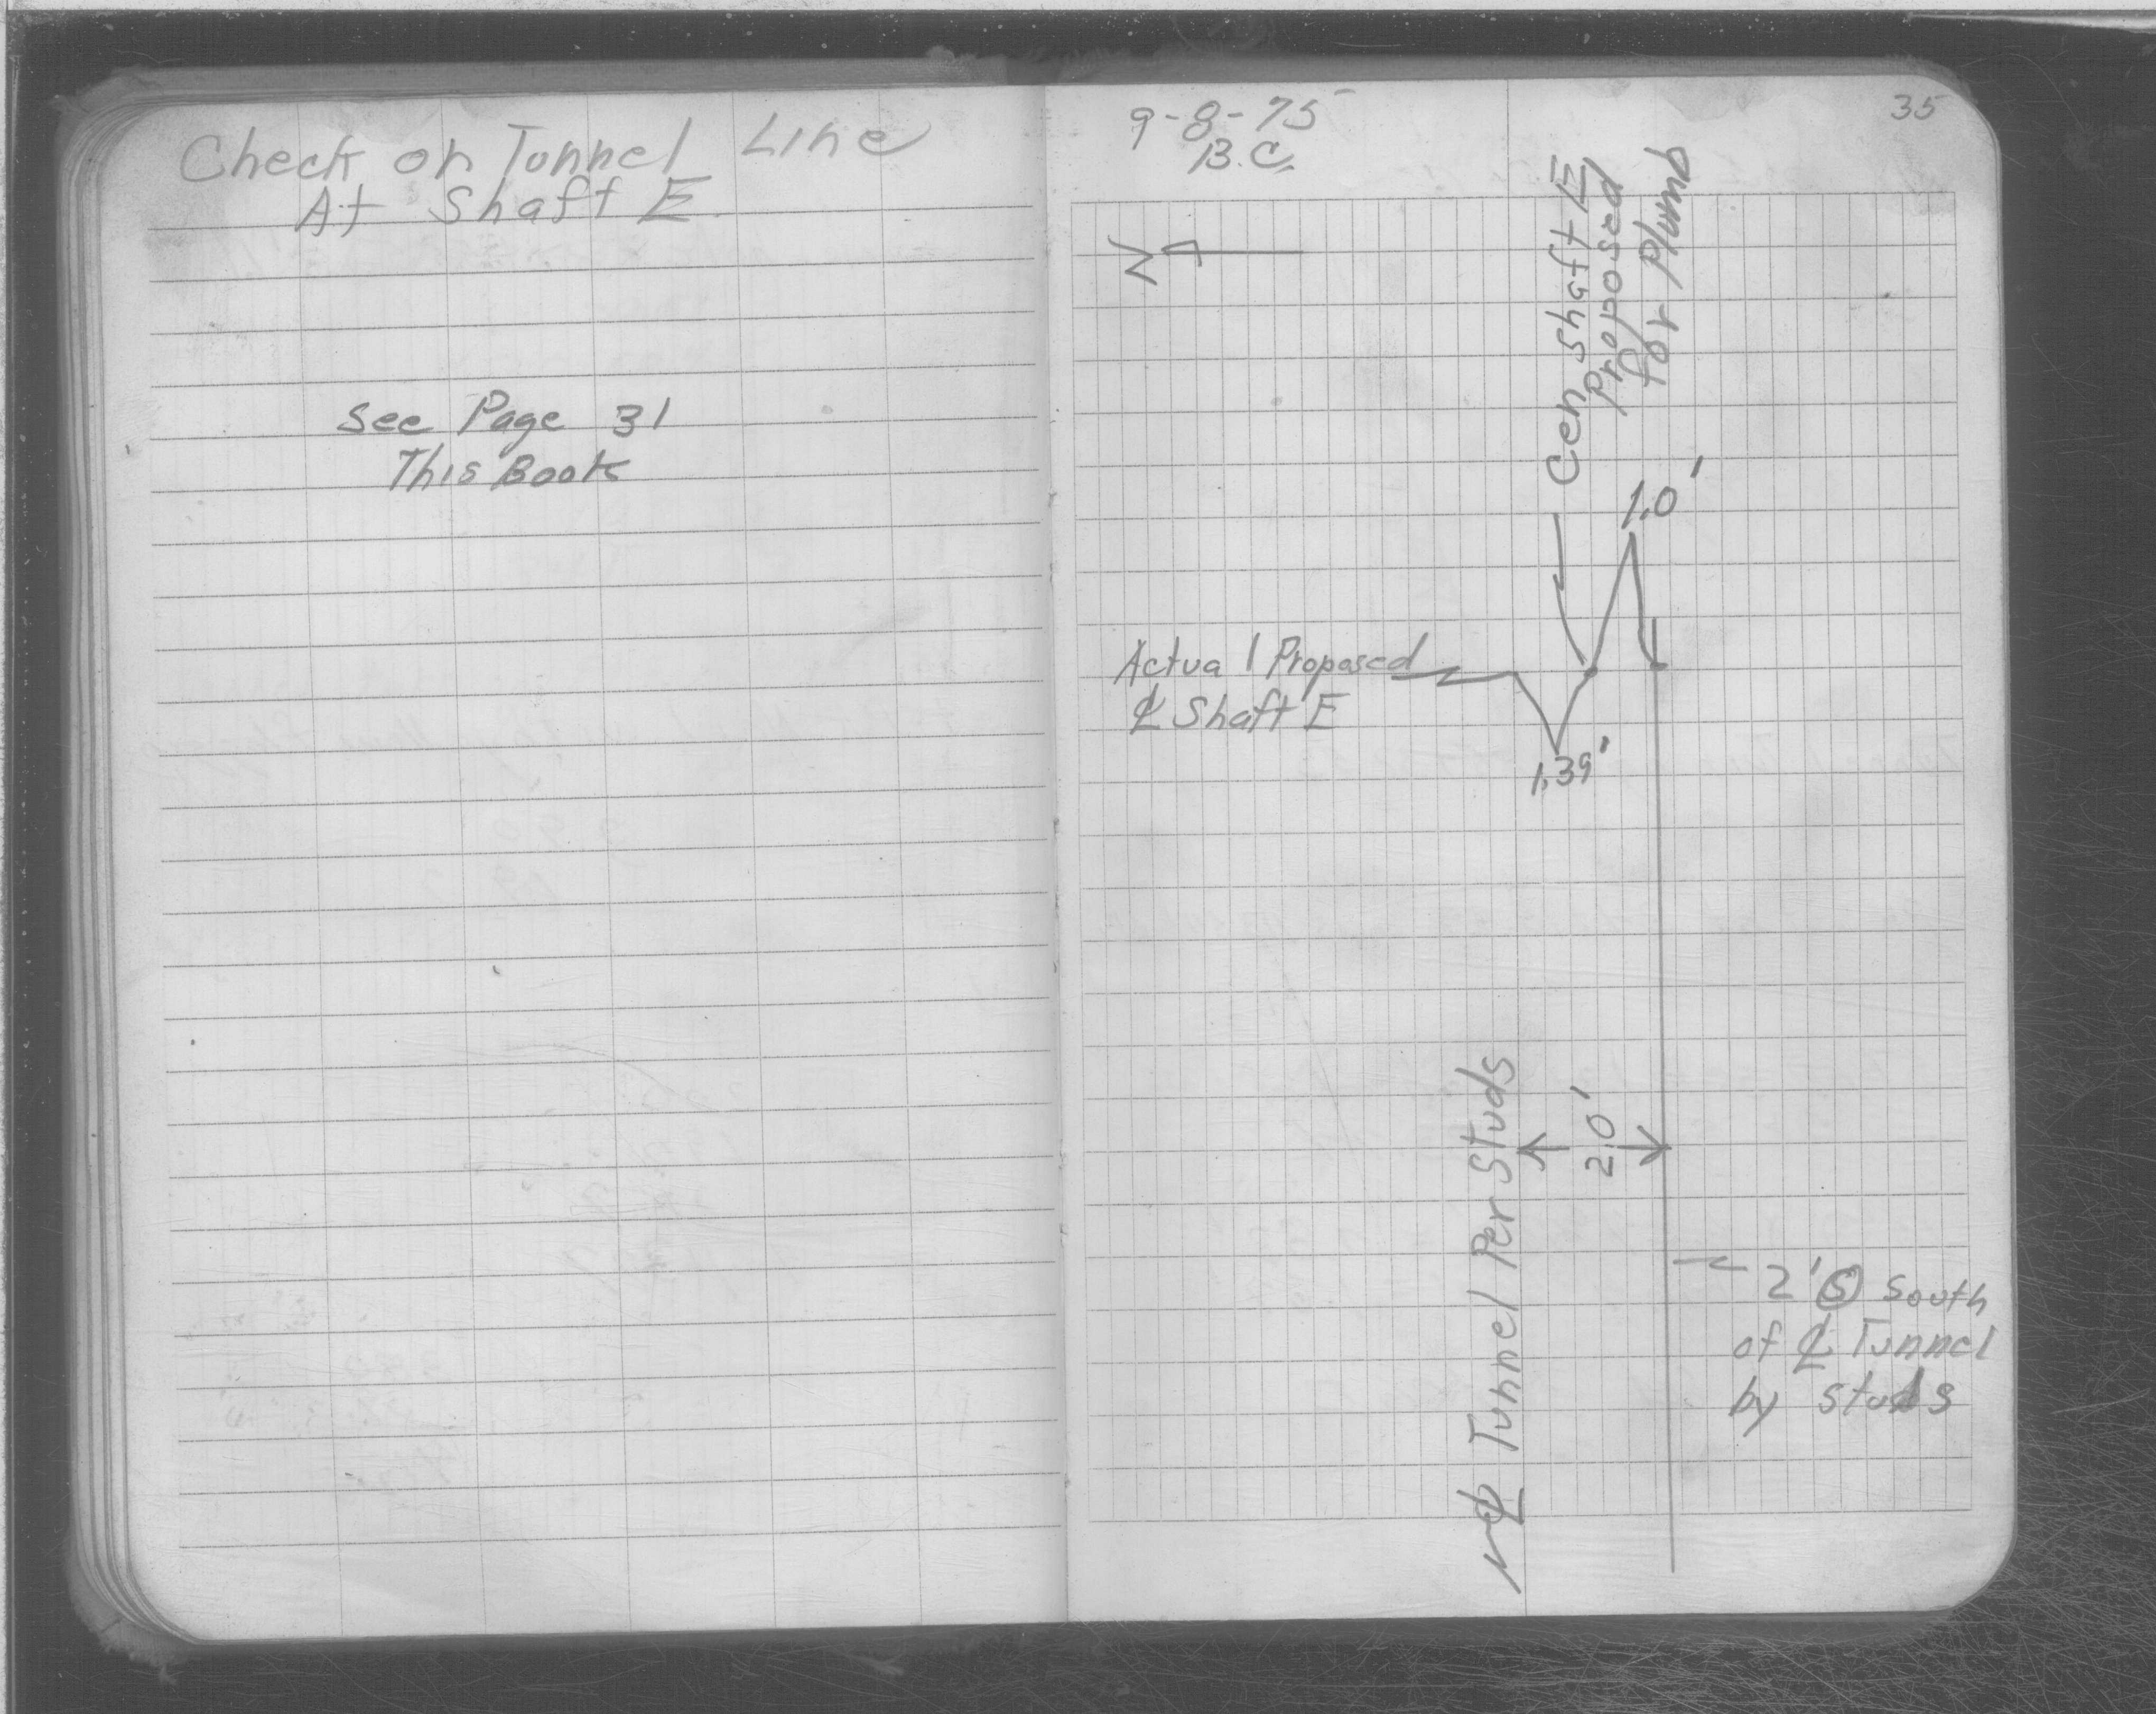 Check on Tunnel Line
At Shaft E
See Page 31
This Book
9-8-75
B.C.
35
N
Cen Shaft E
Proposed
for Plumb
1.0'
Actual Proposed
℄ Shaft E
1.39'
℄ Tunnel Per Studs
2.0'
2' Ⓢ South
of ℄ Tunnel
by Studs